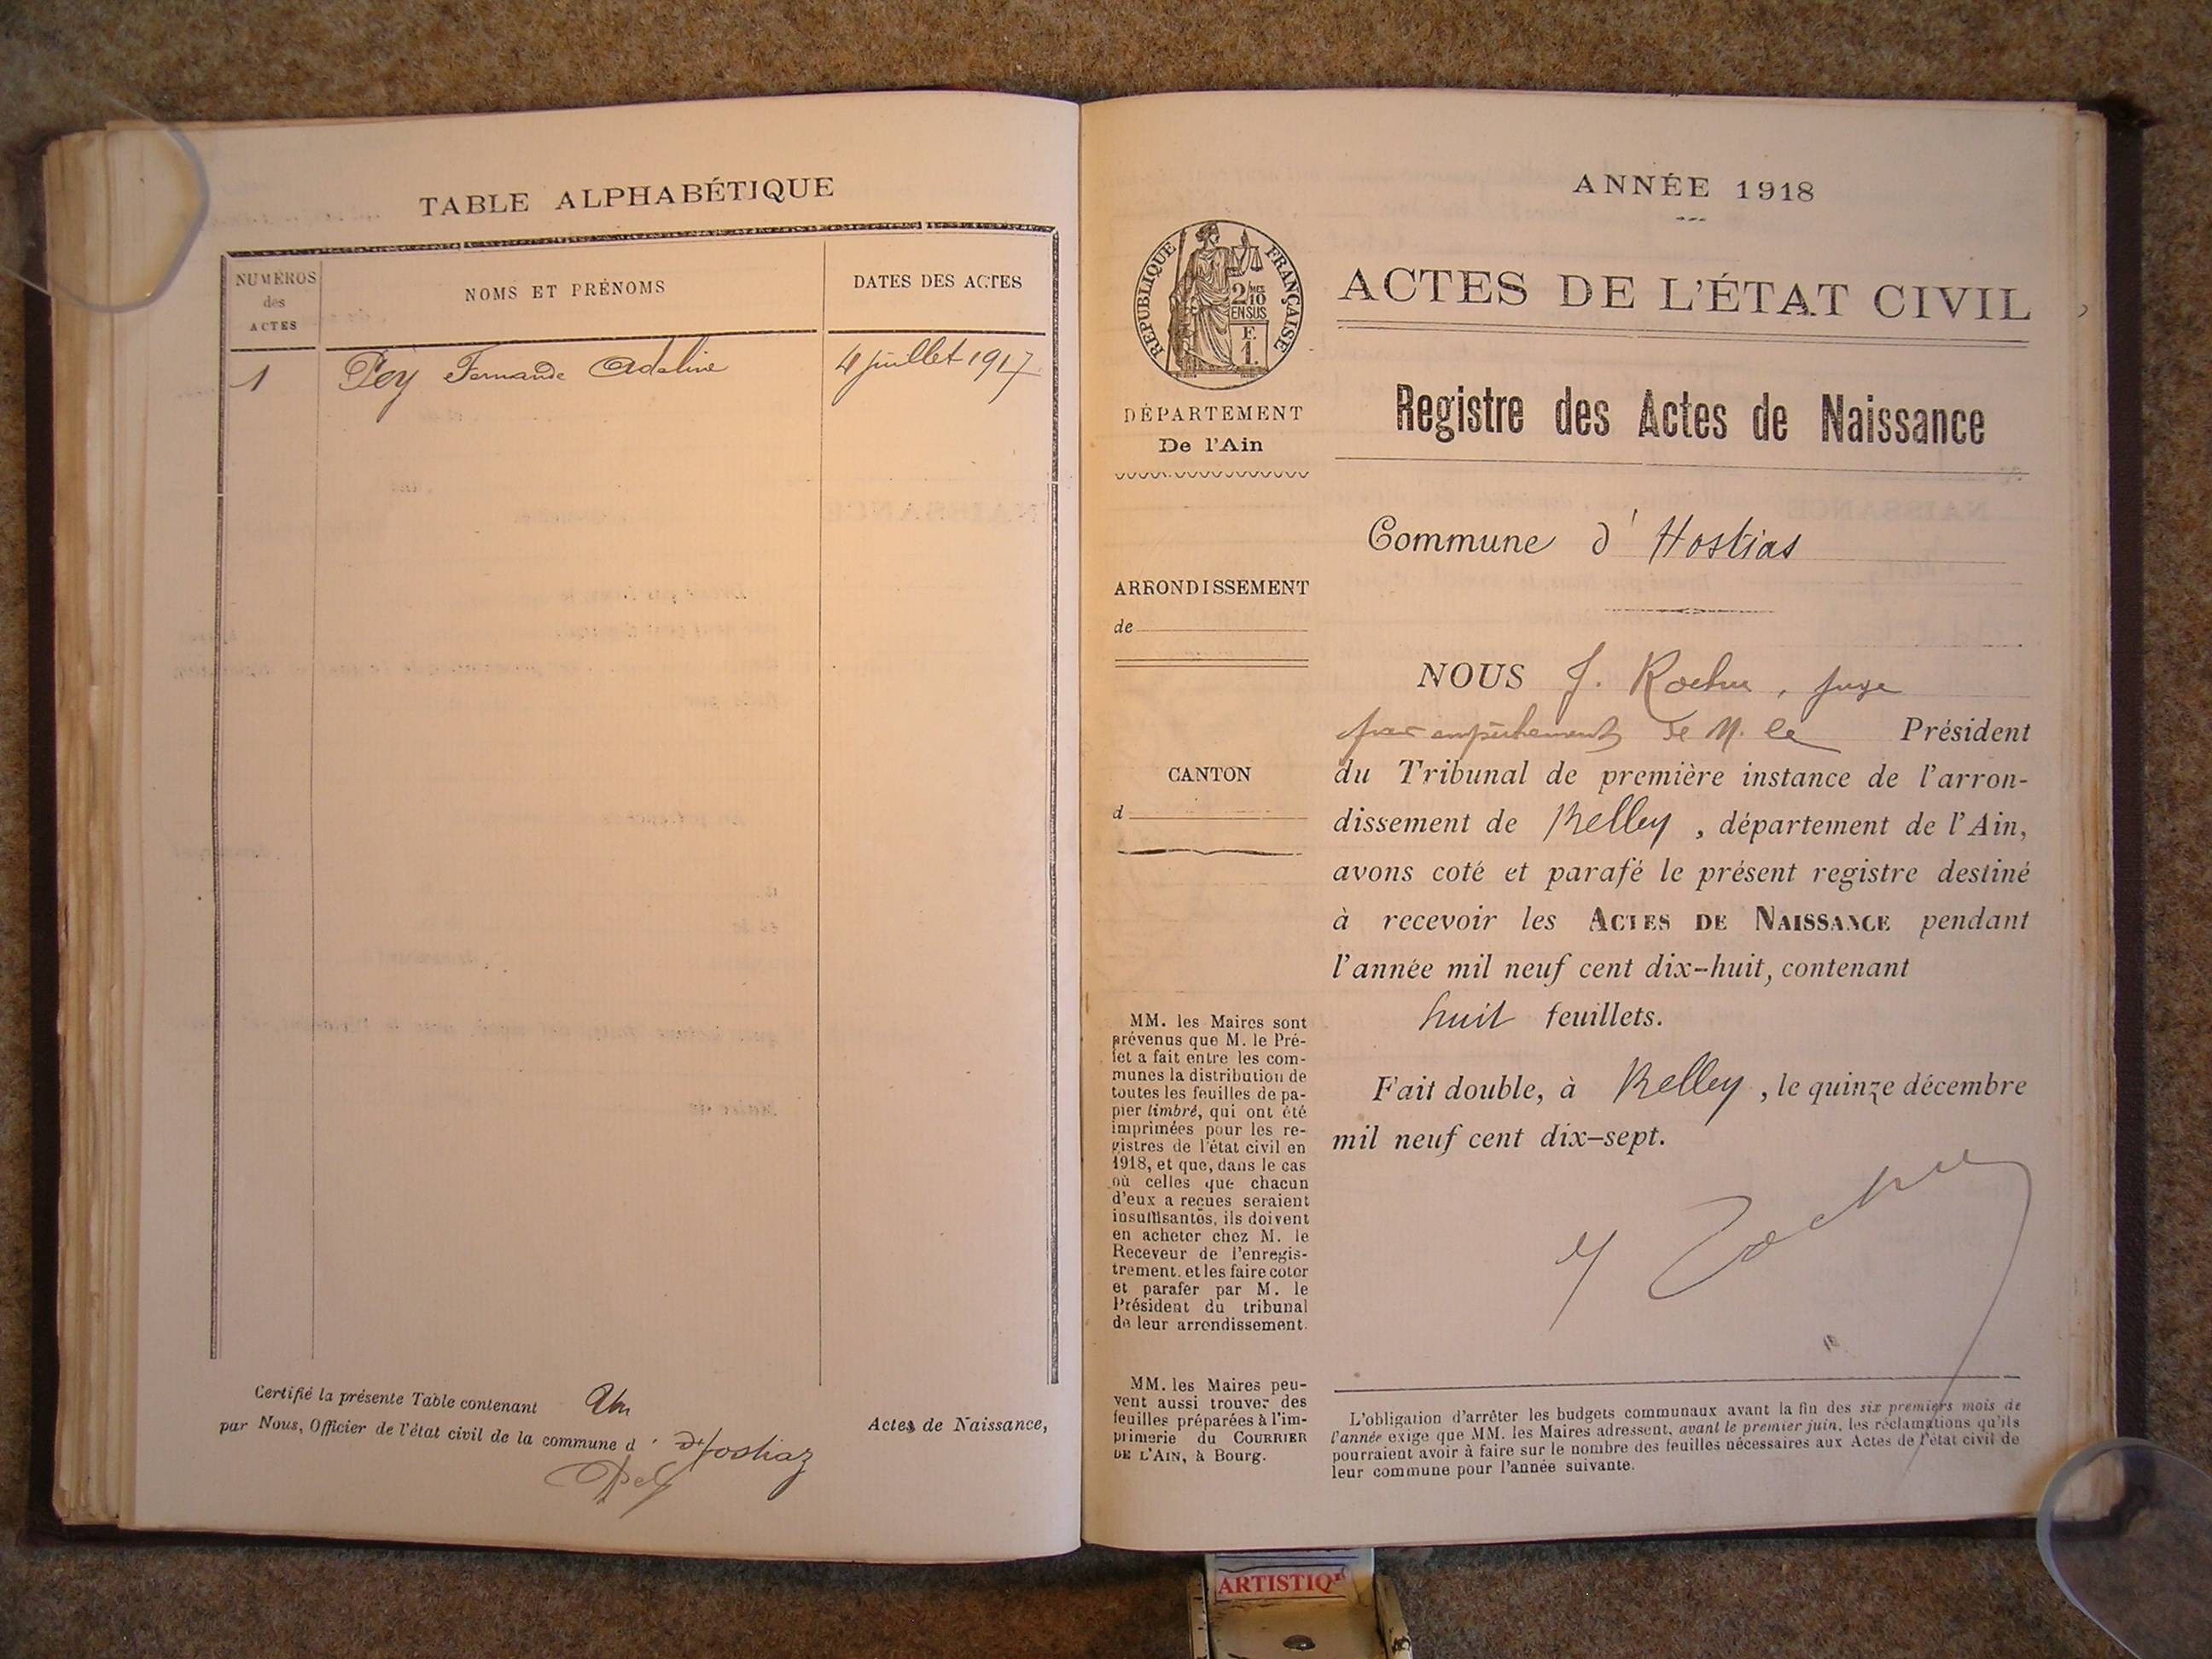 TABLE ALPHABÉTIQUE
NUMÉROS
des
ACTES
NOMS ET PRÉNOMS
DATES DES ACTES
1
Pey Fernande Adeline
4 juillet 1917
Certifié la présente Table contenant Un
Actes de Naissance,
par Nous, Officier de l'état civil de la commune d' d'Hostiaz
Pey
ANNÉE 1918
RÉPUBLIQUE FRANÇAISE
2/10 MES
EN SUS
F.
1.
ACTES DE L'ÉTAT CIVIL
Registre des Actes de Naissance
DÉPARTEMENT
De l'Ain
Commune d'Hostias
ARRONDISSEMENT
de
CANTON
d
NOUS J. Rochu, juge
par empêchement de M. le Président
du Tribunal de première instance de l'arron-
dissement de Belley, département de l'Ain,
avons coté et parafé le présent registre destiné
à recevoir les ACTES DE NAISSANCE pendant
l'année mil neuf cent dix-huit, contenant
huit feuillets.
Fait double, à Belley, le quinze décembre
mil neuf cent dix-sept.
MM. les Maires sont
prévenus que M. le Pré-
fet a fait entre les com-
munes la distribution de
toutes les feuilles de pa-
pier timbré, qui ont été
imprimées pour les re-
gistres de l'état civil en
1918, et que, dans le cas
où celles que chacun
d'eux a reçues seraient
insuffisantes, ils doivent
en acheter chez M. le
Receveur de l'enregis-
trement, et les faire coter
et parafer par M. le
Président du tribunal
de leur arrondissement.
MM. les Maires peu-
vent aussi trouver des
feuilles préparées à l'im-
primerie du COURRIER
DE L'AIN, à Bourg.
L'obligation d'arrêter les budgets communaux avant la fin des six premiers mois de
l'année exige que MM. les Maires adressent, avant le premier juin, les réclamations qu'ils
pourraient avoir à faire sur le nombre des feuilles nécessaires aux Actes de l'état civil de
leur commune pour l'année suivante.
ARTISTIQ